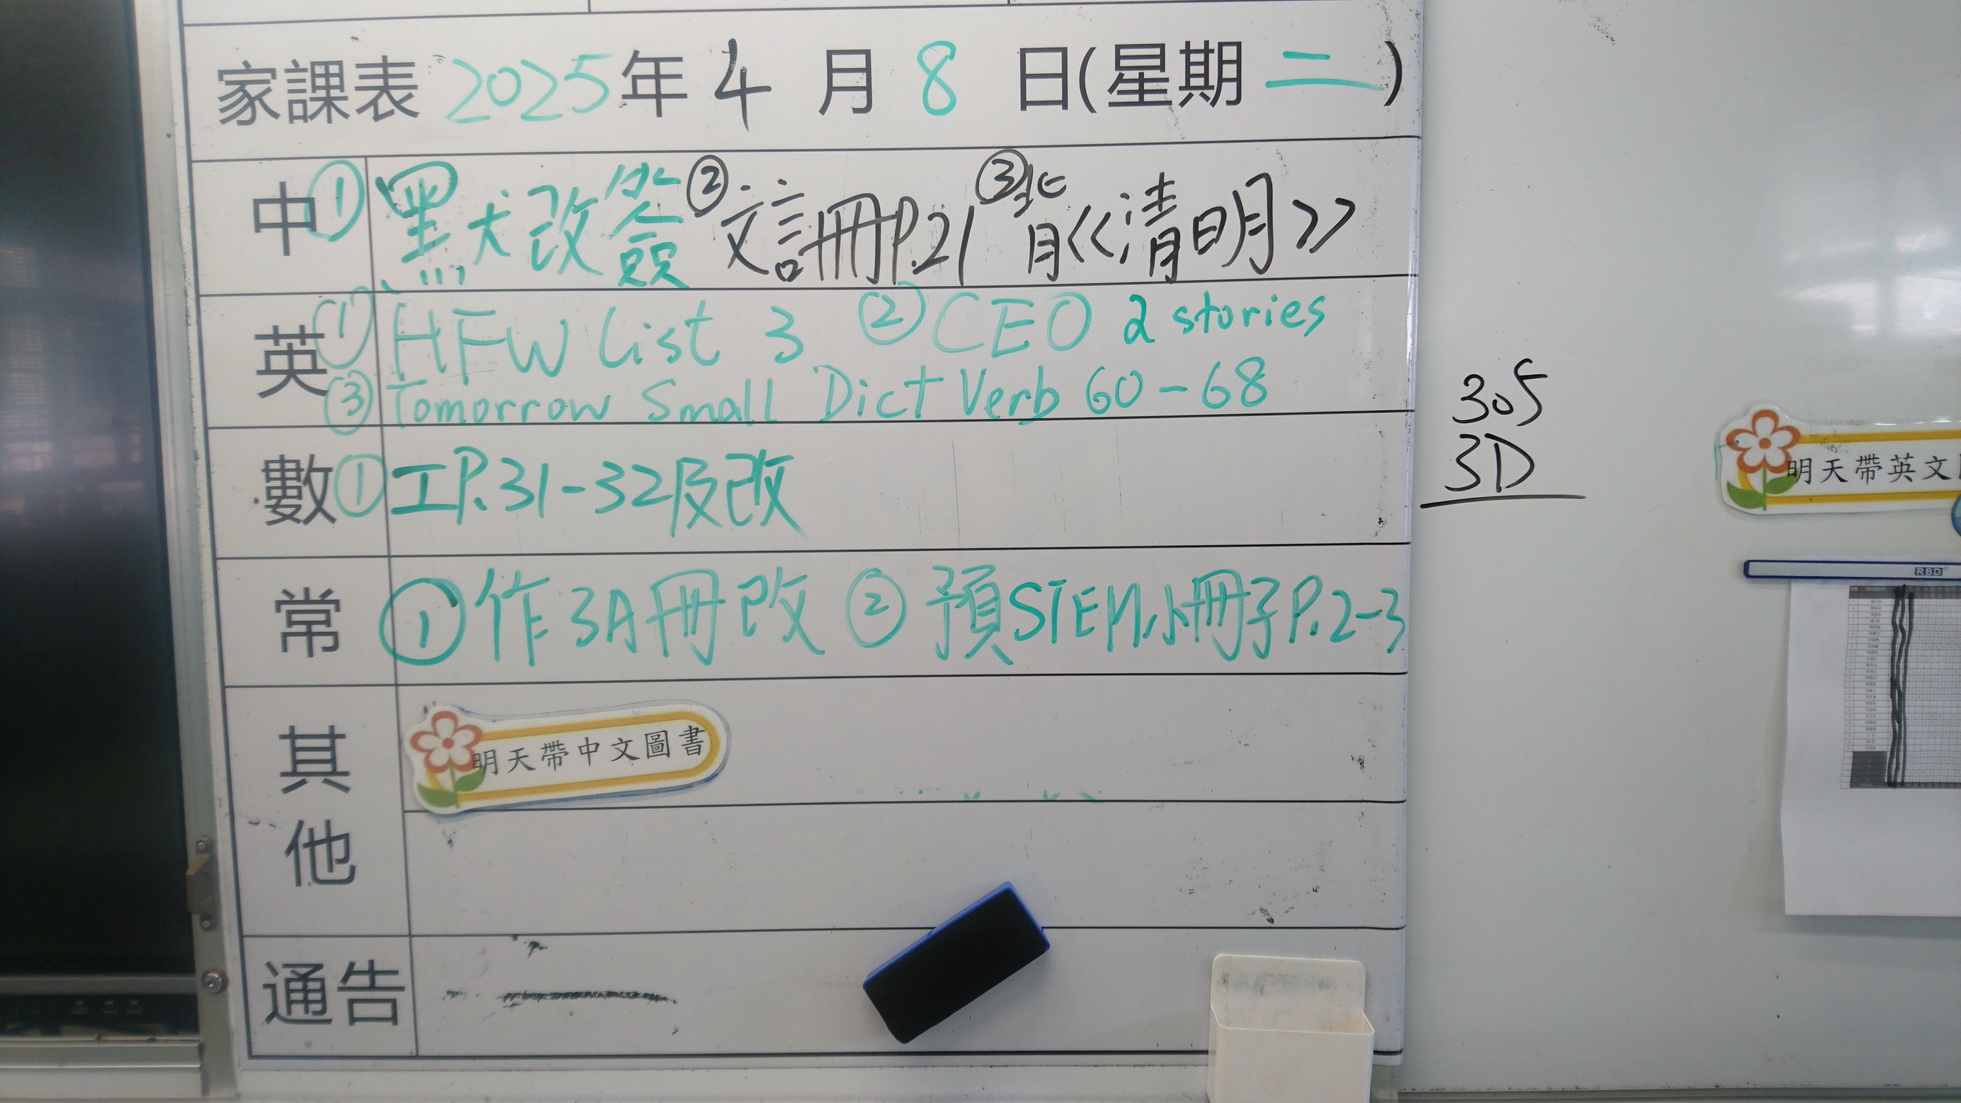 家課表 2025年 4 月 8 日(星期 二 )
中 ① 黑犬改簽 ② 文言冊P.21 ③ 背《清明》
英 ① HFW List 3 ② CEO 2 stories
③ Tomorrow Small Dict Verb 60-68
數 ① 工P.31-32及改
常 ① 作3A冊改 ② 預STEM小冊子P.2-3
其他
明天帶中文圖書
通告
305
3D
明天帶英文
RBD